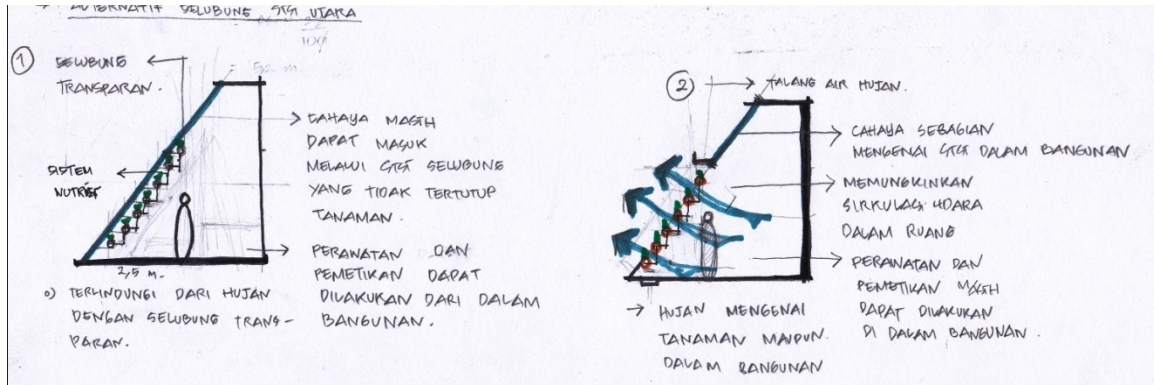 → ALTERNATIF SELUBUNG SISI UTARA
1
SELUBUNG
TRANSPARAN.
SISTEM
NUTRISI
CAHAYA MASIH
DAPAT MASUK
MELALUI SISI SELUBUNG
YANG TIDAK TERTUTUP
TANAMAN.
PERAWATAN DAN
PEMETIKAN DAPAT
DILAKUKAN DARI DALAM
BANGUNAN.
2,5 m.
o) TERLINDUNGI DARI HUJAN
DENGAN SELUBUNG TRANS-
PARAN.
2
TALANG AIR HUJAN.
CAHAYA SEBAGIAN
MENGENAI SISI DALAM BANGUNAN
MEMUNGKINKAN
SIRKULASI UDARA
DALAM RUANG
PERAWATAN DAN
PEMETIKAN MASIH
DAPAT DILAKUKAN
DI DALAM BANGUNAN.
→ HUJAN MENGENAI
TANAMAN MAUPUN
DALAM BANGUNAN